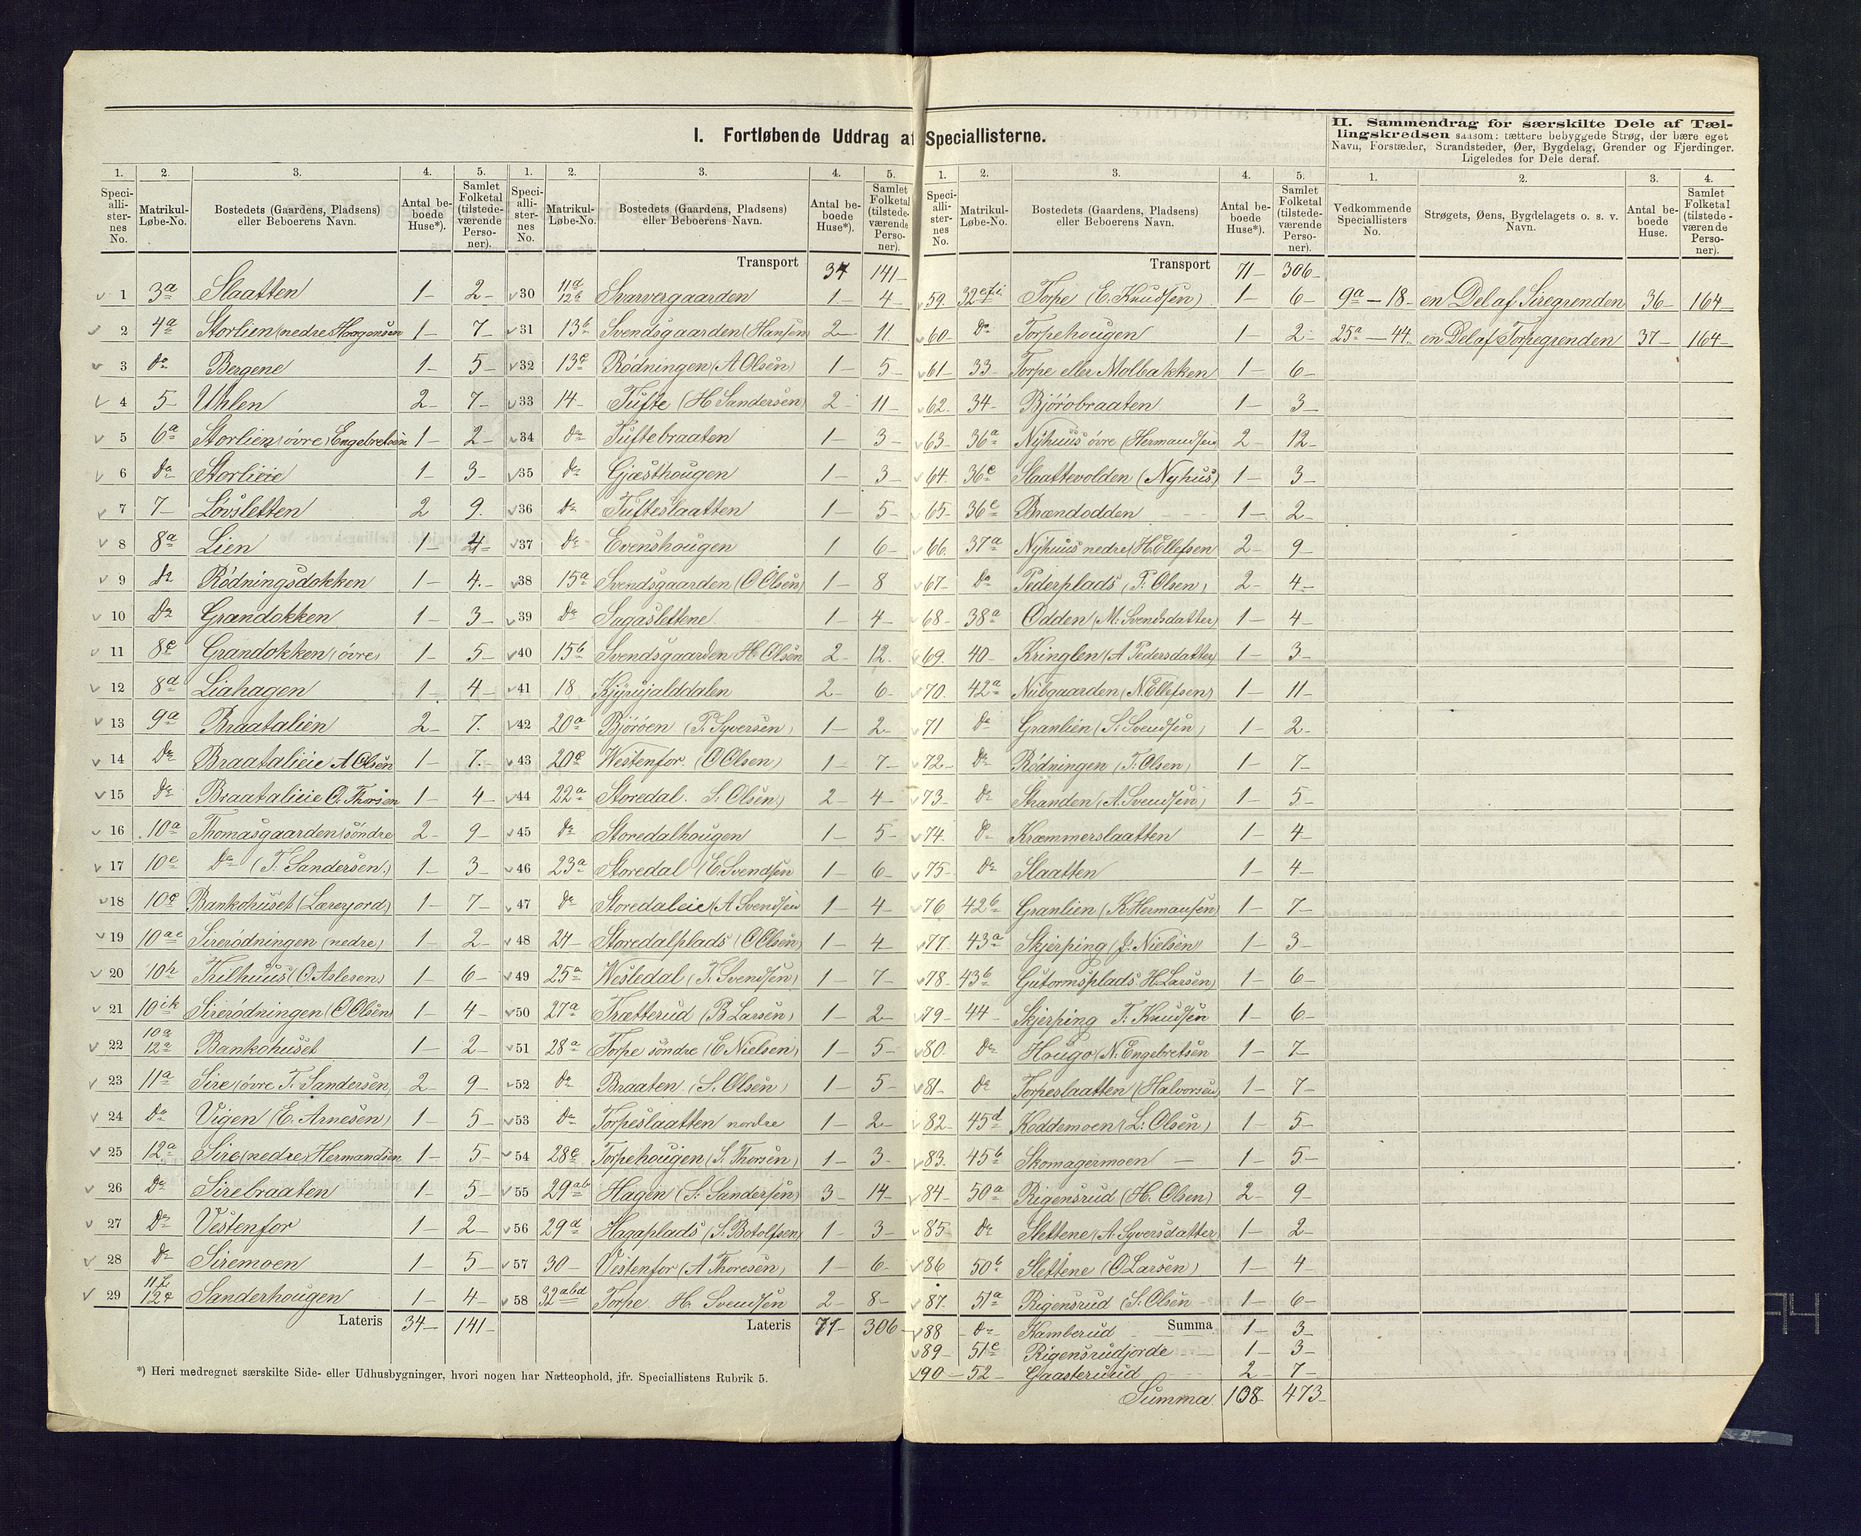 I. Fortløbende Uddrag af Speciallisterne.
1. 2. 3. 4. 5.
Speciallisternes No. Matrikul-Løbe-No. Bostedets (Gaardens, Pladsens) eller Beboerens Navn. Antal beboede Huse*). Samlet Folketal (tilstedeværende Personer).
1 3a Slaatten 1 2
2 4a Storlien (nedre) Horgensen 1 7
3 Do Bergene 1 5
4 5 Uhlen 2 7
5 6a Storlien (øvre) Engebretsen 1 2
6 Do Storlieie 1 3
7 7 Løvsletten 2 9
8 8a Lien 1 4
9 Do Rödningsdokken 1 4
10 Do Grandokken 1 3
11 8c Grandokken (øvre) 1 5
12 8d Liahagen 1 4
13 9a Braatalien 2 7
14 Do Braatalieie A Olsen 1 7
15 Do Braatalieie O. Thorsen 1 4
16 10a Thomasgaarden (söndre 2 9
17 10e Do (T. Sandersen) 1 3
18 10c Bankohuset (Lærerjord) 1 7
19 10ae Sirerödningen (nedre) 1 2
20 10h Thilhuus (O Aslesen) 1 6
21 10ik Sirerödningen (O Olsen) 1 4
22 10a 12a Bankohuset 1 2
23 11a Sire (øvre T. Sandersen) 2 9
24 Do Vigen (E. Arnesen) 1 5
25 12a Sire (nedre Hermandsen 1 5
26 Do Sirebraaten 1 5
27 Do Vestenfor 1 2
28 Do Siremoen 1 5
29 12c Sanderhougen 1 4
Lateris 34 141
*) Heri medregnet særskilte Side- eller Udhusbygninger, hvori nogen har Natteophold, jfr. Speciallistens Rubrik 5.
1. 2. 3. 4. 5.
Speciallisternes No. Matrikul-Løbe-No. Bostedets (Gaardens, Pladsens) eller Beboerens Navn. Antal beboede Huse*). Samlet Folketal (tilstedeværende Personer).
Transport 34 141
30 11d 12b Svarvergaarden 1 4
31 13b Svendsgaarden (Hansen) 2 11
32 13c Rödningen (A Olsen) 1 5
33 14 Tufte (H Sandersen) 2 11
34 Do Tuftebraaten 1 3
35 Do Gjæsthougen 1 3
36 Do Tufteslaatten 1 5
37 Do Evenshougen 1 6
38 15a Svendsgaarden (O Olsen) 1 8
39 Do Sagaslettene 1 4
40 15b Svendsgaarden H. Olsen 2 12
41 18 2 6
42 20a Björöen (P. Syversen) 1 2
43 20c Westenfor (O Olsen) 1 7
44 22a Storedal S. Olsen) 2 4
45 Do Storedalhougen 1 5
46 23a Storedal (E. Svendsen 1 6
47 Do Storedaleie (A Svendsen 1 4
48 24 Storedalplads (O Olsen) 1 4
49 25a Westedal (T. Svendsen) 1 7
50 27a Trætterud (B Larsen) 1 2
51 28a Torpe söndre (E Nielsen) 1 5
52 Do Braaten (S. Olsen) 1 5
53 Do Torpeslaatten nordre 1 2
54 28c Torpehougen (S. Thorsen) 1 3
55 29ab Hagen (S. Sandersen) 3 14
56 29d Hagaplads (S. Botolfsen) 1 3
57 30 Vestenfor (A Thoresen) 1 6
58 32abd Torpe H. Svendsen 2 8
Lateris 71 306
1. 2. 3. 4. 5.
Speciallisternes No. Matrikul-Løbe-No. Bostedets (Gaardens, Pladsens) eller Beboerens Navn. Antal beboede Huse*). Samlet Folketal (tilstedeværende Personer).
Transport 71 306
59 32 Torpe (E. Knudsen) 1 6
60 Do Torpehougen 1 2
61 33 Torpe eller Molbakken 1 6
62 34 Björöbraaten 1 3
63 36a Nyhuus øvre (Hermandsen 2 12
64 36c Slaattevolden (Nyhus) 1 3
65 36c Brændodden 1 2
66 37a Nyhuus nedre (H. Ellefsen 2 9
67 Do Pederplads (T. Olsen) 2 4
68 38a Odden (M. Svendsdatter) 1 4
69 40 Kringlen (A Pedersdatter) 1 3
70 42a Nibgaarden (N. Ellefsen) 1 11
71 Do Granlien (S. Svendsen) 1 2
72 Do Rödningen (T. Olsen) 1 7
73 Do Stranden (A. Svendsen) 1 5
74 Do Kræmmerslaatten 1 4
75 Do Slaatten 1 4
76 42b Granlien (K. Hermansen) 1 7
77 43a Skjerping (J. Nielsen) 1 3
78 43b Gutormsplads H. Larsen) 1 6
79 44 Skjerping T. Knudsen 1 6
80 Do Hougo (N. Engebretsen 1 7
81 Do Torpeslaatten (Halvorsen) 1 7
82 45d Koddemoen (L. Olsen) 1 5
83 45b Skomagermoen 1 5
84 50a Rigensrud (H. Olsen) 2 9
85 Do Slettene (A. Syversdatter) 1 2
86 50b Slettene (O Larsen) 1 4
87 51a Rigensrud (S. Olsen 1 6
88 Do Kamberud Summa 1 3
89 51c Rigensrudjorde 1 3
90 52 Gaasterurud 2 7
Summa 108 473
II. Sammendrag for særskilte Dele af Tællingskredsen saasom: tættere bebyggede Strøg, der bære eget
Navn, Forstæder, Strandsteder, Øer, Bygdelag, Grender og Fjerdinger.
Ligeledes for Dele deraf.
1. 2. 3. 4.
Vedkommende Speciallisters No. Strøgets, Øens, Bygdelagets o. s. v. Navn. Antal beboede Huse. Samlet Folketal (tilstedeværende Personer).
9a — 18 en Del af Siregrenden 36 164
25a — 44 en Del af Torpegrenden 37 164